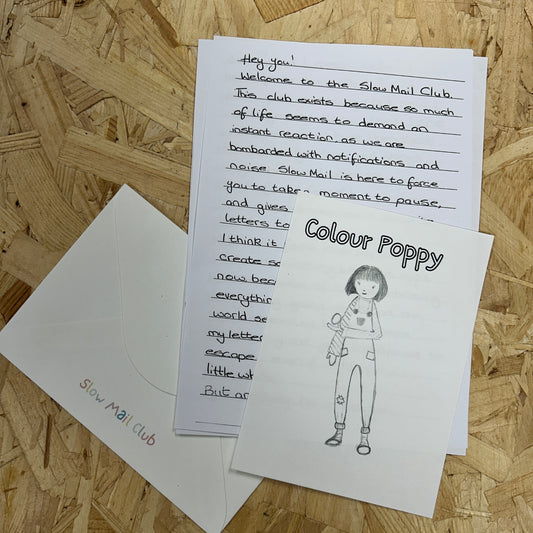 Hey you!
Welcome to the Slow Mail Club.
This club exists because so much
of life seems to demand an
instant reaction as we are
bombarded with notifications and
noise. Slow Mail is here to force
you to take a moment to pause,
and gives
letters to
I think it
create so
now. bec
everythin
world se
my letter
escape
little wh
But ar
Colour Poppy
Slow Mail Club